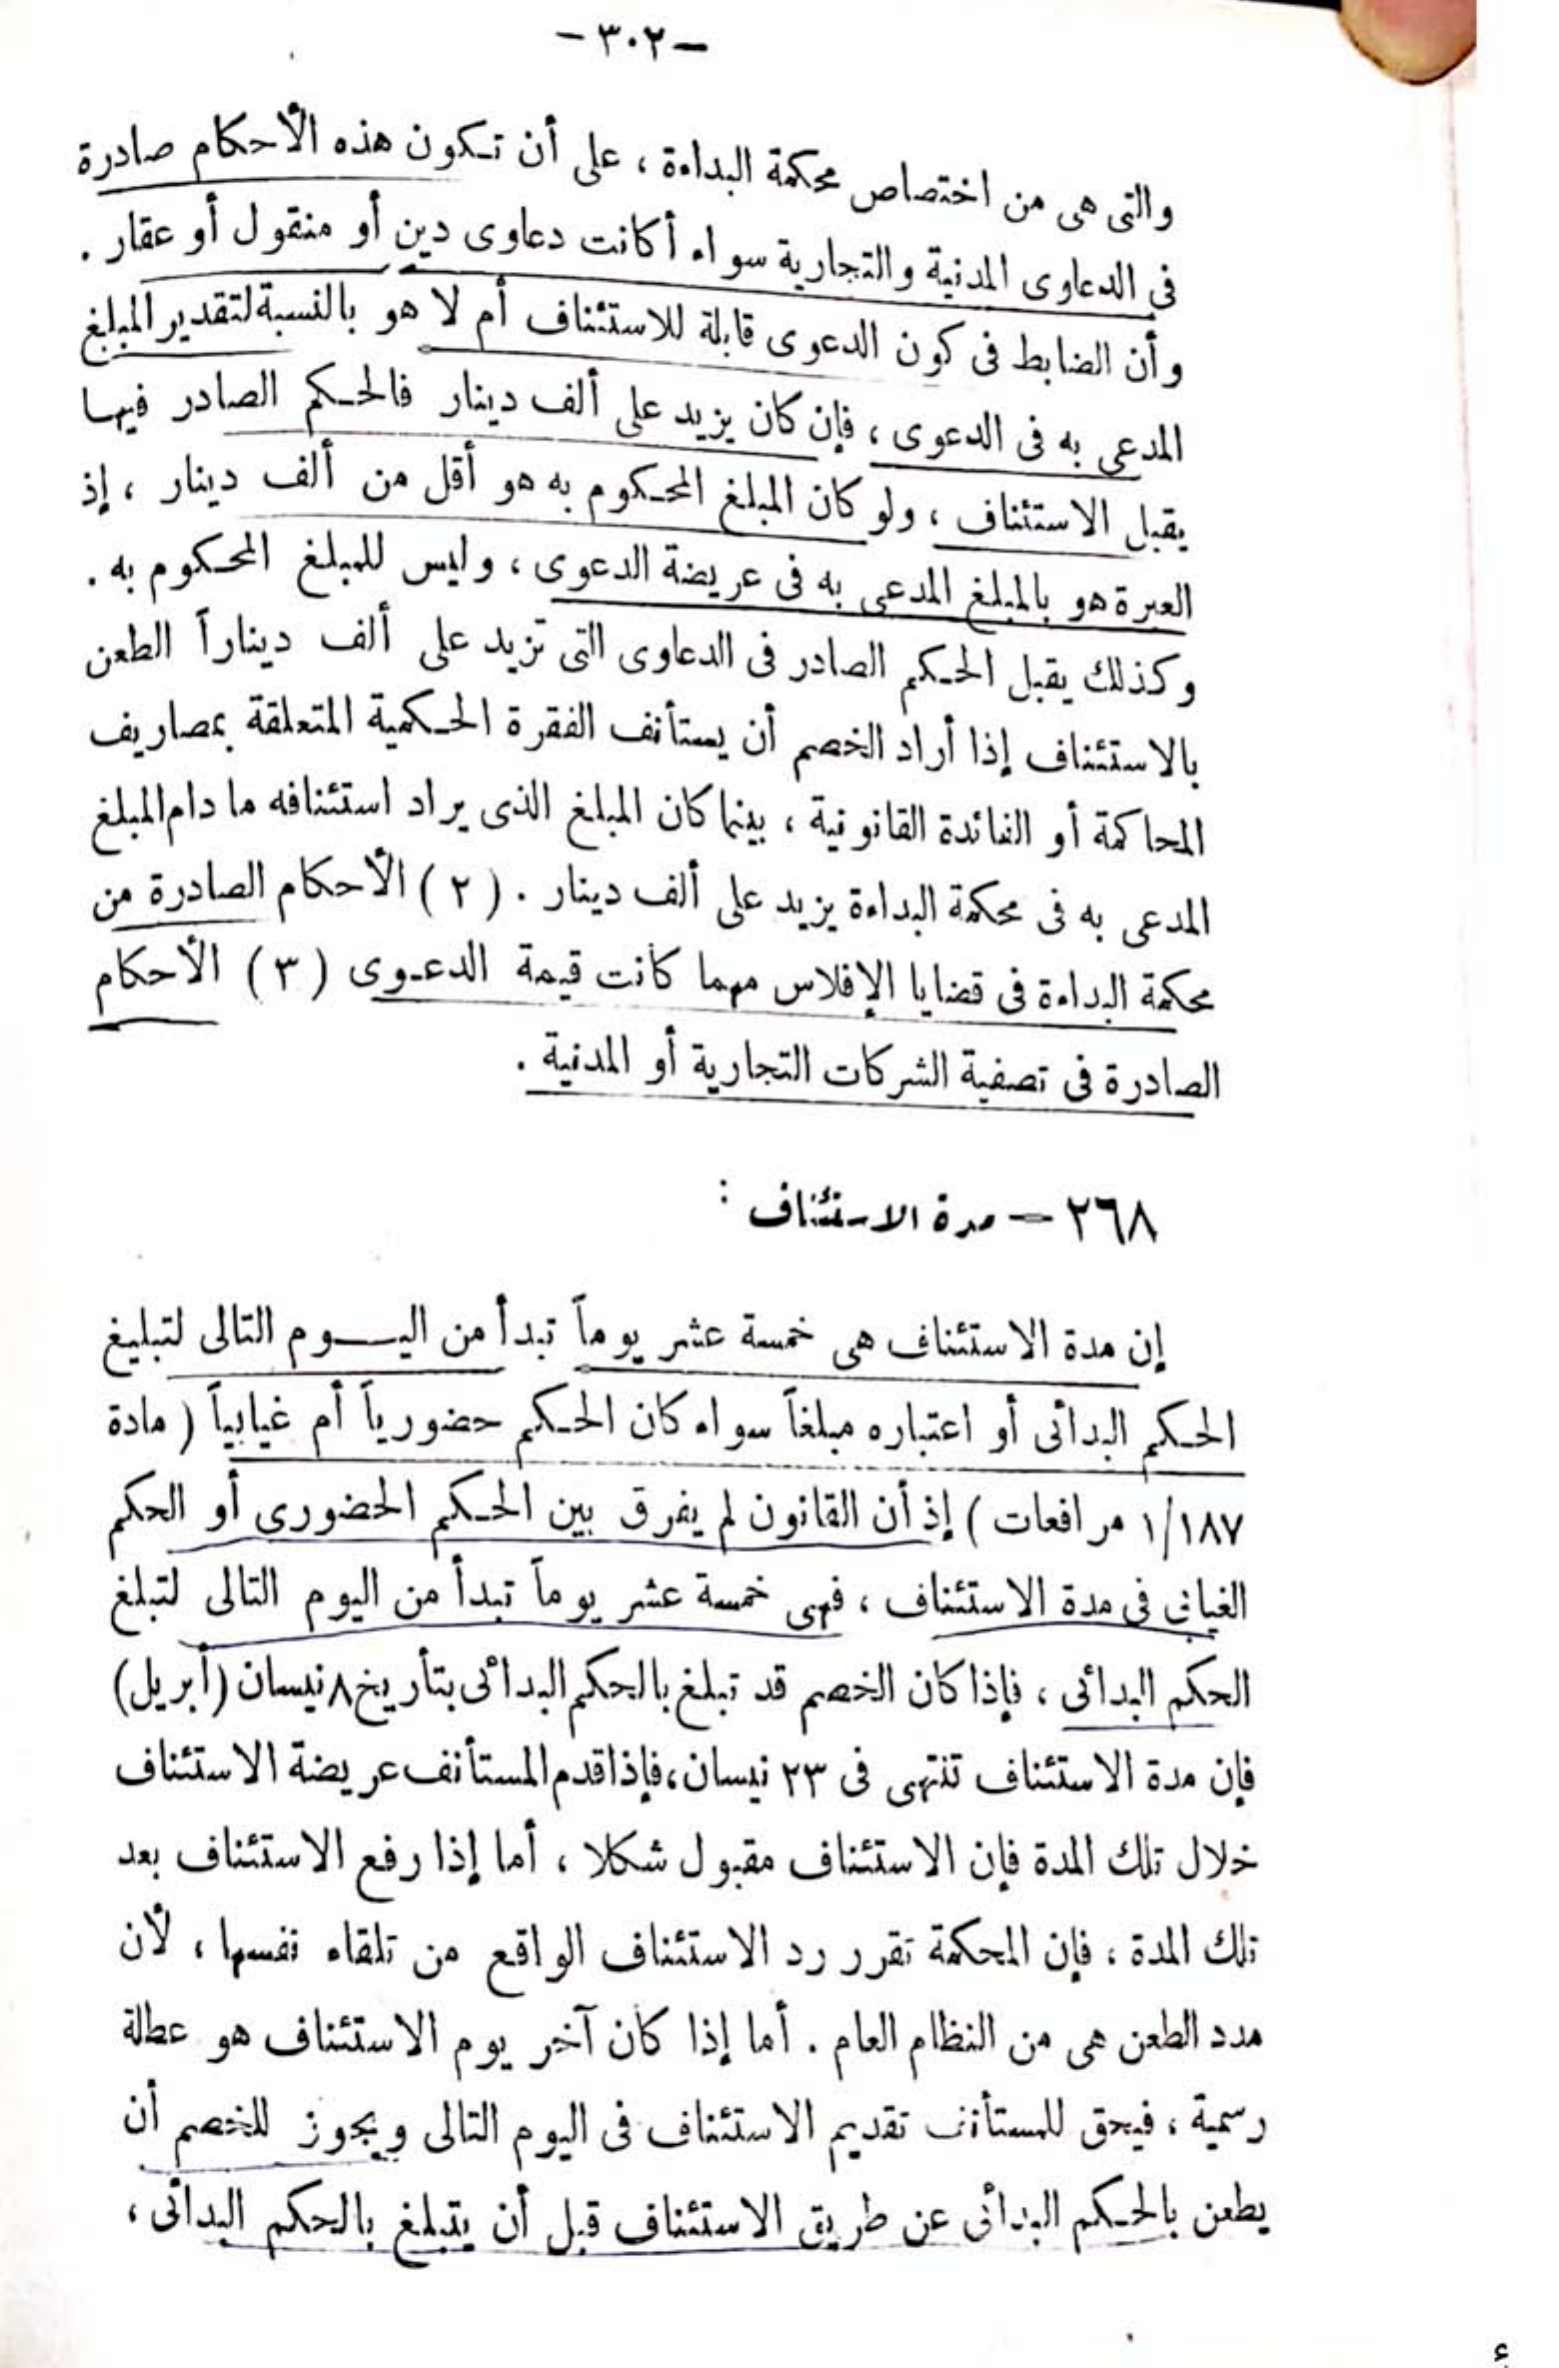 -٣٠٢-
والتى هى من اختصاص محكمة البداءة ، على أن تكون هذه الأحكام صادرة
فى الدعاوى المدنية والتجارية سواء أكانت دعاوى دين أو منقول أو عقار .
وأن الضابط فى كون الدعوى قابلة للاستئناف أم لا هو بالنسبة لتقدير المبلغ
المدعى به فى الدعوى ، فإن كان يزيد على ألف دينار فالحكم الصادر فيها
يقبل الاستئناف ، ولو كان المبلغ المحكوم به هو أقل من ألف دينار ، إذ
العبرة هو بالمبلغ المدعى به فى عريضة الدعوى ، وليس للمبلغ المحكوم به .
وكذلك يقبل الحكم الصادر فى الدعاوى التى تزيد على ألف ديناراً الطعن
بالاستئناف إذا أراد الخصم أن يستأنف الفقرة الحكمية المتعلقة بمصاريف
المحاكمة أو الفائدة القانونية ، بينما كان المبلغ الذى يراد استئنافه ما دام المبلغ
المدعى به فى محكمة البداءة يزيد على ألف دينار . ( ٢ ) الأحكام الصادرة من
محكمة البداءة فى قضايا الإفلاس مهما كانت قيمة الدعوى ( ٣ ) الأحكام
الصادرة فى تصفية الشركات التجارية أو المدنية .
٢٦٨ — مدة الاستئناف :
إن مدة الاستئناف هى خمسة عشر يوماً تبدأ من اليوم التالى لتبليغ
الحكم البدائى أو اعتباره مبلغاً سواء كان الحكم حضورياً أم غيابياً ( مادة
١/١٨٧ مرافعات ) إذ أن القانون لم يفرق بين الحكم الحضورى أو الحكم
الغيابى فى مدة الاستئناف ، فهى خمسة عشر يوماً تبدأ من اليوم التالى لتبلغ
الحكم البدائى ، فإذا كان الخصم قد تبلغ بالحكم البدائى بتأريخ ٨ نيسان (أبريل)
فإن مدة الاستئناف تنتهى فى ٢٣ نيسان ، فإذا قدم المستأنف عريضة الاستئناف
خلال تلك المدة فإن الاستئناف مقبول شكلا ، أما إذا رفع الاستئناف بعد
تلك المدة ، فإن المحكمة تقرر رد الاستئناف الواقع من تلقاء نفسها ، لأن
مدد الطعن هى من النظام العام . أما إذا كان آخر يوم الاستئناف هو عطلة
رسمية ، فيحق للمستأنف تقديم الاستئناف فى اليوم التالى ويجوز للخصم أن
يطعن بالحكم البدائى عن طريق الاستئناف قبل أن يتبلغ بالحكم البدائى ،